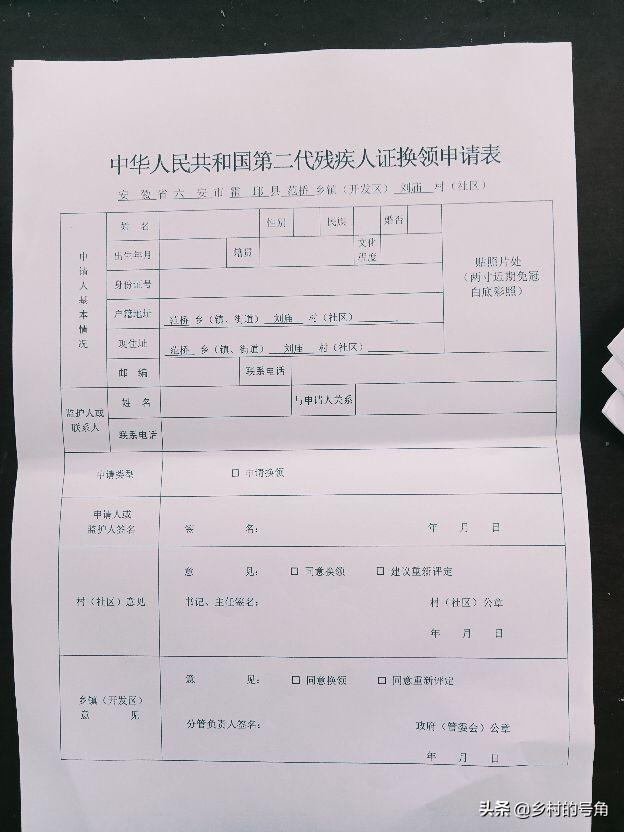 中华人民共和国第二代残疾人证换领申请表
安 徽 省 六 安 市 霍 邱 县 范桥 乡镇（开发区） 刘庙 村（社区）
申请人基本情况
姓 名 性别 民族 婚否
出生年月 籍贯 文化程度
身份证号
户籍地址 范桥 乡（镇、街道） 刘庙 村（社区）
现住址 范桥 乡（镇、街道） 刘庙 村（社区）
邮 编 联系电话
贴照片处
（两寸近期免冠
白底彩照）
监护人或
联系人
姓 名 与申请人关系
联系电话
申请类型 □ 申请换领
申请人或
监护人签名
签 名： 年 月 日
村（社区）意见
意 见： □ 同意换领 □ 建议重新评定
书记、主任签名： 村（社区）公章
年 月 日
乡镇（开发区）
意 见
意 见： □ 同意换领 □ 同意重新评定
分管负责人签名： 政府（管委会）公章
年 月 日
头条 @乡村的号角